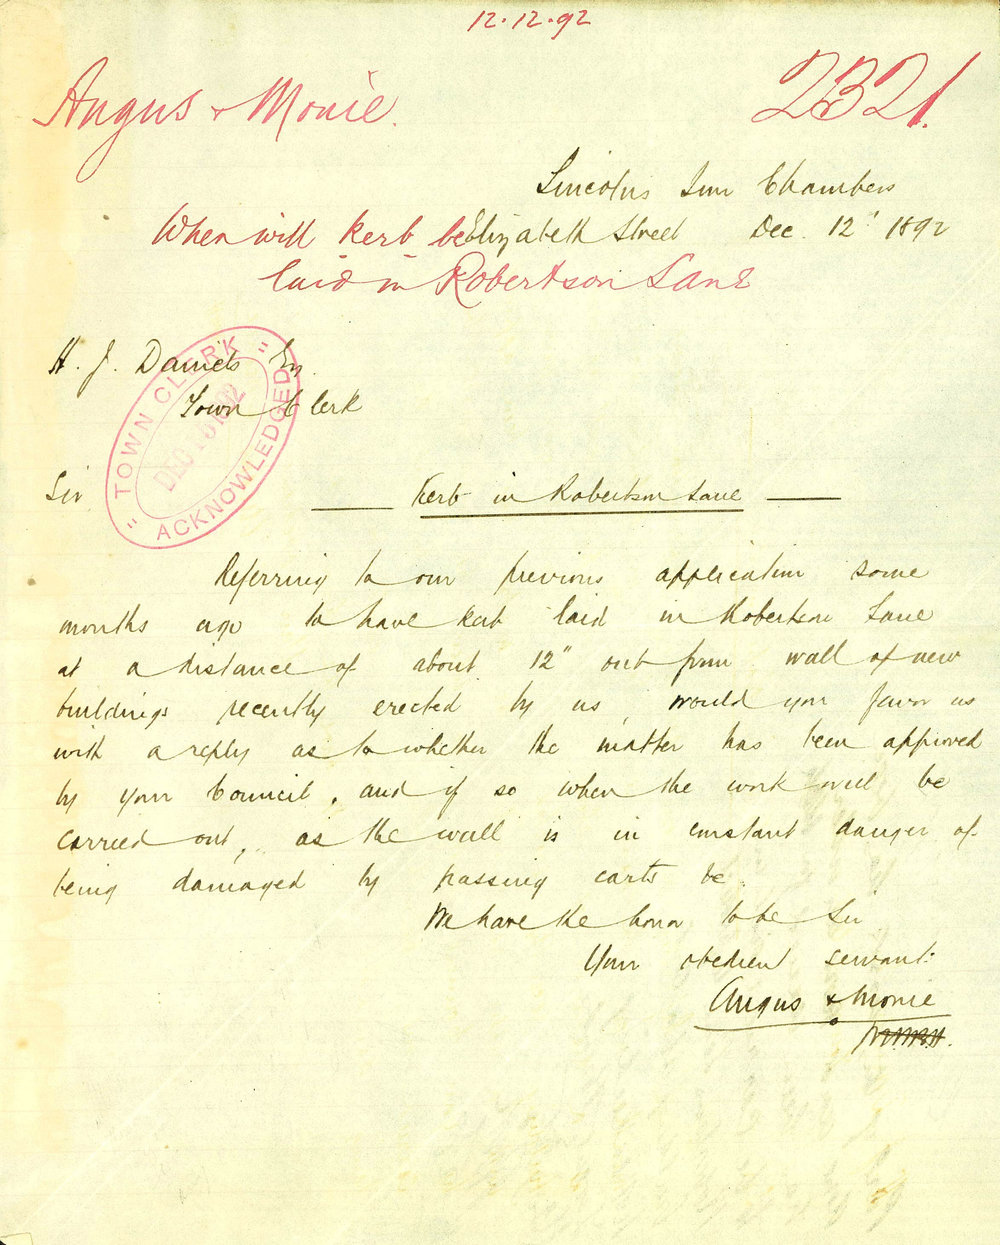 12.12.92
Angus & Monie.
2321.
Lincolns Inn Chambers
Elizabeth Street Dec. 12' 1892
When will kerb be
laid in Robertson Lane
H. J. Daniels Esq.
Town Clerk
" TOWN CLERK "
DEC 16 1892
ACKNOWLEDGED
Sir
Kerb in Robertson Lane
Referring to our previous application some
months ago to have kerb laid in Robertson Lane
at a distance of about 12" out from wall of new
buildings recently erected by us, would you favor us
with a reply as to whether the matter has been approved
by your Council, and if so when the work will be
carried out, as the wall is in constant danger of
being damaged by passing carts &c.
We have the honor to be Sir
Your obedient servant.
Angus & Monie